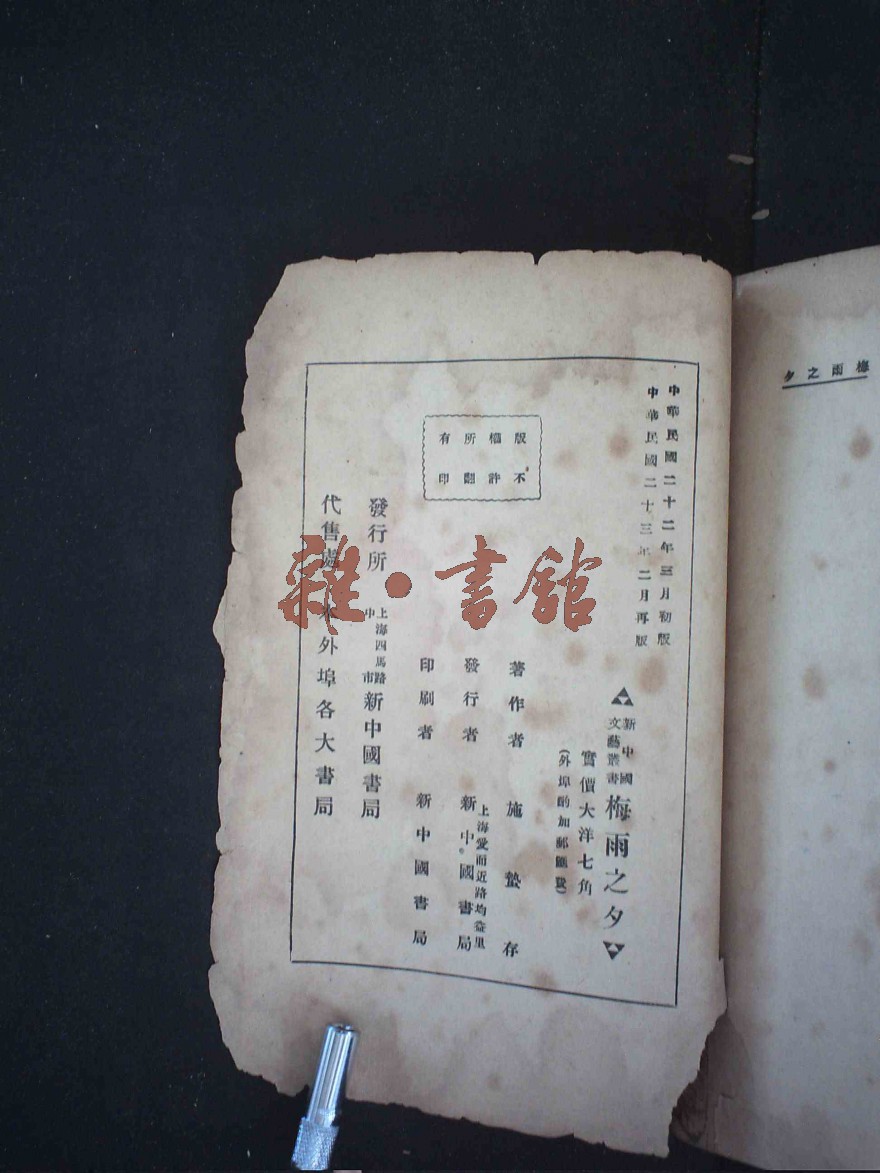 梅雨之夕
中華民國二十二年三月初版
中華民國二十三年二月再版
新中國
文藝叢書
梅雨之夕
實價大洋七角
(外埠酌加郵匯費)
版權所有
不許翻印
著作者 施蟄存
發行者 新中國書局
上海愛而近路均益里
印刷者 新中國書局
發行所
上海四馬路
中市
新中國書局
代售處 外埠各大書局
雜·書館